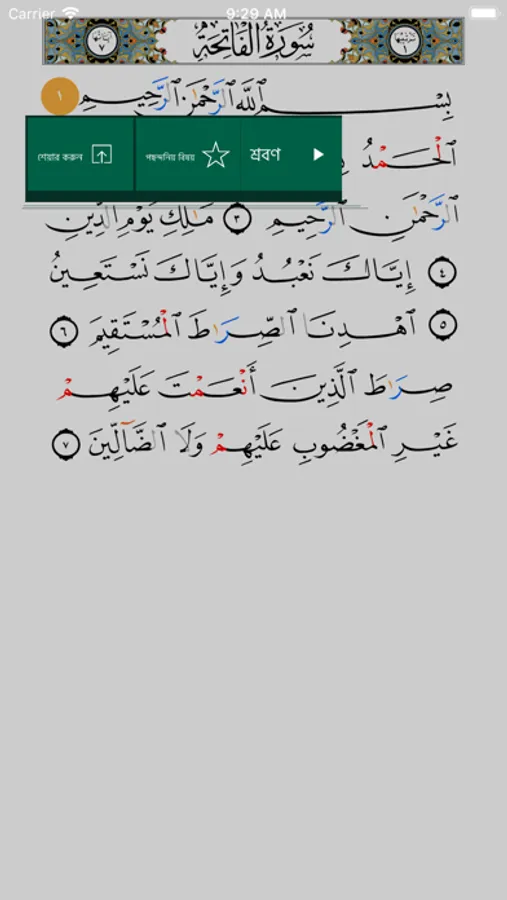 Carrier 9:29 AM
سُورَةُ الْفَاتِحَةِ
بِسْمِ ٱللَّهِ ٱلرَّحْمَٰنِ ٱلرَّحِيمِ ١
শেয়ার করুন পছন্দনিয় বিষয় শ্রবণ
ٱلْحَمْدُ
ٱلرَّحْمَٰنِ ٱلرَّحِيمِ ٣ مَٰلِكِ يَوْمِ ٱلدِّينِ
٤ إِيَّاكَ نَعْبُدُ وَإِيَّاكَ نَسْتَعِينُ
٥ ٱهْدِنَا ٱلصِّرَٰطَ ٱلْمُسْتَقِيمَ ٦
صِرَٰطَ ٱلَّذِينَ أَنْعَمْتَ عَلَيْهِمْ
غَيْرِ ٱلْمَغْضُوبِ عَلَيْهِمْ وَلَا ٱلضَّآلِّينَ ٧